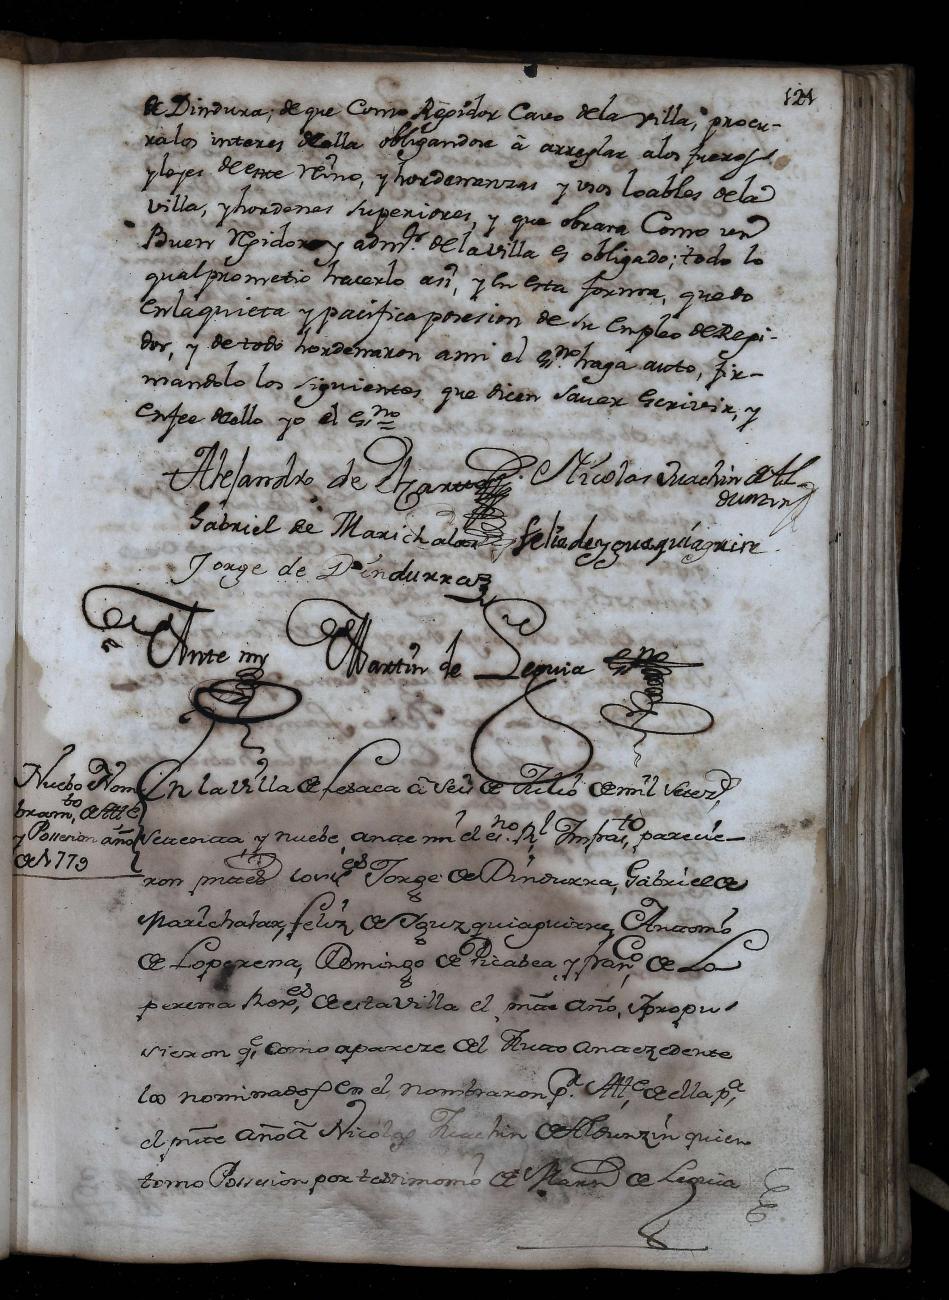 121
de Dindura, de que Como Regidor Cavo de la villa, procu-
ra los interes della obligandose â arreglar a los fueros
y leyes de este Rno, y hordenanzas y usos loables de la
villa, y hordenes superiores, y que obrara Como un
Buen Rgidor y admor. de la villa es obligado; todo lo
qual prometio hacerlo asi, y en esta forma, quedo
en la quieta y pacifica posesion de su empleo de Regi-
dor, y de todo hordenaron a mi el Sno. haga auto, fir-
mandolo los siguientes que dicen saver escrivir, y
en fee dello yo el Sno
Alejandro de
Nicolas Juachin de Al-
dunzin
Gabriel de Marichalar
felix de yguzquiaguirre
Jorge de Dindurra
Ante mi Martin de Leguia Sno
Nuebo Nom
bramto, de Alle
y Possesion año
de 1779
En la villa de Lesaca â seis de Julio de mil setezs
settenta y nuebe, ante mi el esno. Rl Infrato, parecie-
ron los Jorge de Dindurra, Gabriel de
Marichalar, felix de Yguzquiaguirre, Antonio
de Loperena, Domingo de Picabea y franco de Lo
perena Rores, de esta Villa el pnte año, y propu
sieron qe, como apareze del Auto antezedente
los nominados en el nombraron pr. Alle, de ella pa,
el pnte año â Nicolas Juachin de Aldunzin quien
tomo Possesion por testimonio de Martn de Leguia